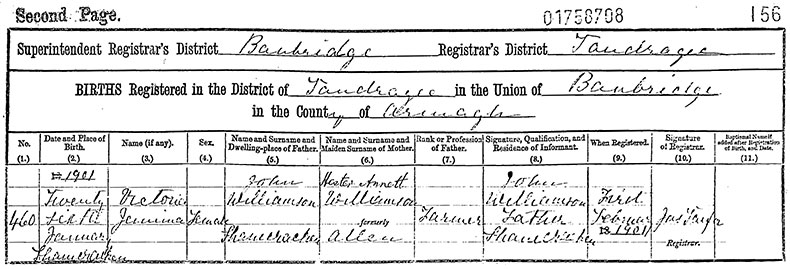 Second Page. 01758708 156
Superintendent Registrar's District Banbridge Registrar's District Tandragee
BIRTHS Registered in the District of Tandragee in the Union of Banbridge
in the County of Armagh
No. Date and Place of Birth. Name (if any). Sex. Name and Surname and Dwelling-place of Father. Name and Surname and Maiden Surname of Mother. Rank or Profession of Father. Signature, Qualification, and Residence of Informant. When Registered. Signature of Registrar. Baptismal Name if added after Registration of Birth, and Date.
(1.) (2.) (3.) (4.) (5.) (6.) (7.) (8.) (9.) (10.) (11.)
1901 John Hester Annett John
Twenty Victoria Williamson Williamson Williamson First
460 sixth Jemima Female formerly Farmer Father February Jas Taylor
January Shaneracken Allen Shaneracken 1901 Registrar.
Shaneracken